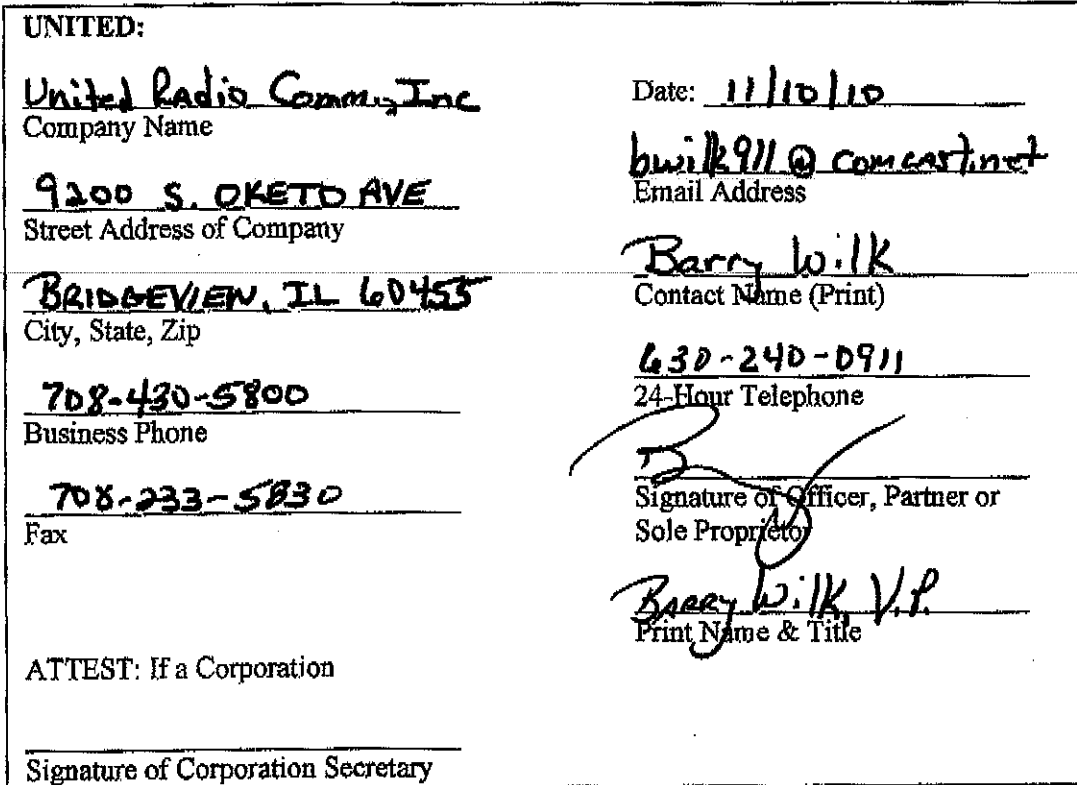 UNITED:
United Radio Comm., Inc
Company Name
9200 S. OKETO AVE
Street Address of Company
BRIDGEVIEW, IL 60455
City, State, Zip
708-430-5800
Business Phone
708-233-5830
Fax
ATTEST: If a Corporation
Signature of Corporation Secretary
Date: 11/10/10
bwilk911@comcast.net
Email Address
Barry Wilk
Contact Name (Print)
630-240-0911
24-Hour Telephone
Signature of Officer, Partner or
Sole Proprietor
Barry Wilk, V.P.
Print Name & Title